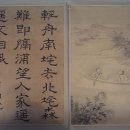 輕舟南垞去北垞淼
難即隔浦望人家遙
遙不相識